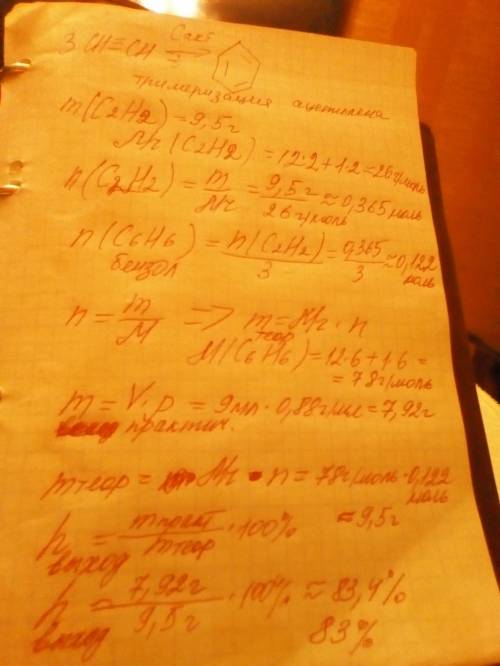 3 CH≡CH Cакт t
тримеризация ацетилена
m(C2H2)=9,5г
Mr(C2H2)=12·2+1·2=26г/моль
n(C2H2)=m/Mr=9,5г/26г/моль≈0,365моль
n(C6H6)=n(C2H2)/3=0,365/3≈0,122 моль
бензол
n=m/M => m=Mr·n
теор
M(C6H6)=12·6+1·6=
=78г/моль
m=V·ρ=9мл·0,88г/мл=7,92г
практич.
mтеор=Mr·n=78г/моль·0,122 моль
=9,5г
h=mпракт/mтеор·100%
выход
h=7,92г/9,5г·100%≈83,4%
выход 83%